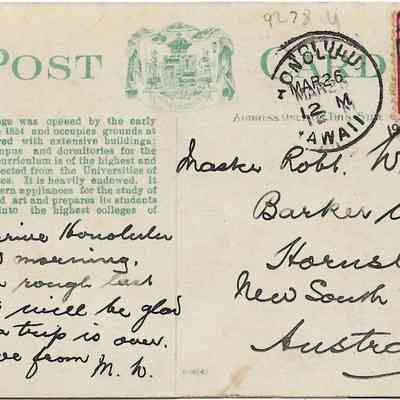 9278
POST CARD
HONOLULU
MAR 26
12 M
HAWAII
ADDRESS
ge was opened by the early
1854 and occupies grounds at
red with extensive buildings,
mpus and dormitories for the
curriculum is of the highest and
ected from the Universities of
es. It is heavily endowed. It
ern appliances for the study of
d art and prepares its students
into the highest colleges of
arrive Honolulu
morning.
rough last
will be glad
trip is over.
ve from M. W.
Master Robt. W
Barker
Hornsb
New South
Austra